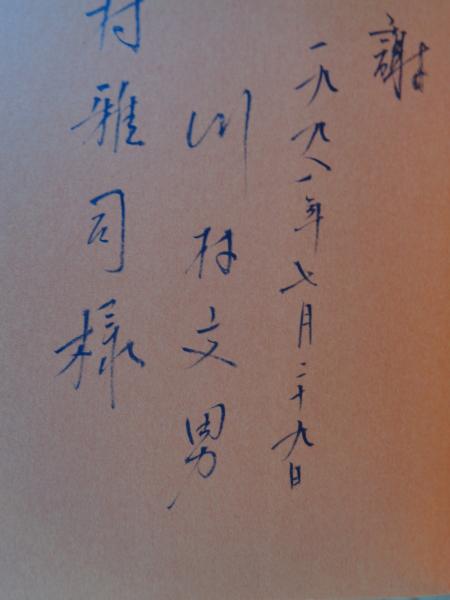 謝
一九九八年七月二十九日
川村文男
村雅司様